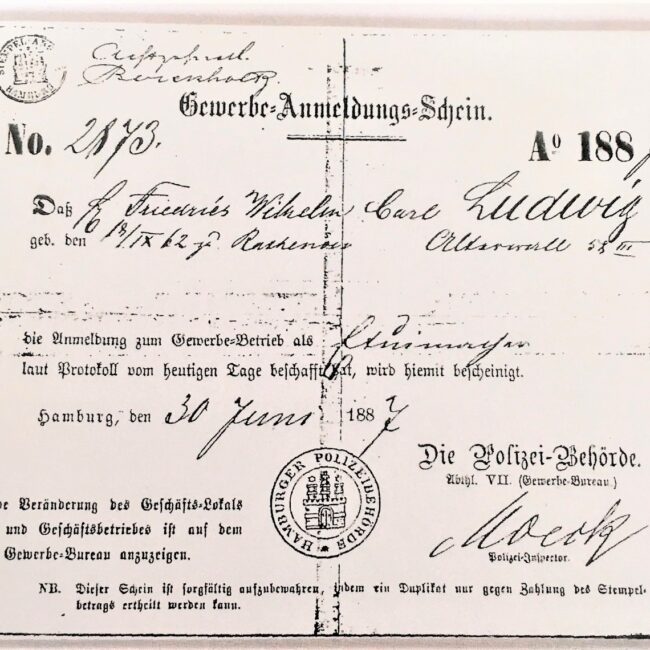 STEMPEL-AMT HAMBURG
Gewerbe-Anmeldungs-Schein.
No. 2873. Aº 188
Daß Friedrich Wilhelm Carl Ludwig
geb. den 18/IX 62 zu Rathenow Alterwall 58 III
die Anmeldung zum Gewerbe-Betrieb als Etuimacher
laut Protokoll vom heutigen Tage beschafft hat, wird hiemit bescheinigt.
Hamburg, den 30 Juni 1887
Die Polizei-Behörde.
Abthl. VII. (Gewerbe-Bureau.)
HAMBURGER POLIZEIBEHÖRDE
Polizei-Inspector.
Veränderung des Geschäfts-Lokals
und Geschäftsbetriebes ist auf dem
Gewerbe-Bureau anzuzeigen.
NB. Dieser Schein ist sorgfältig aufzubewahren, indem ein Duplikat nur gegen Zahlung des Stempel-
betrags ertheilt werden kann.